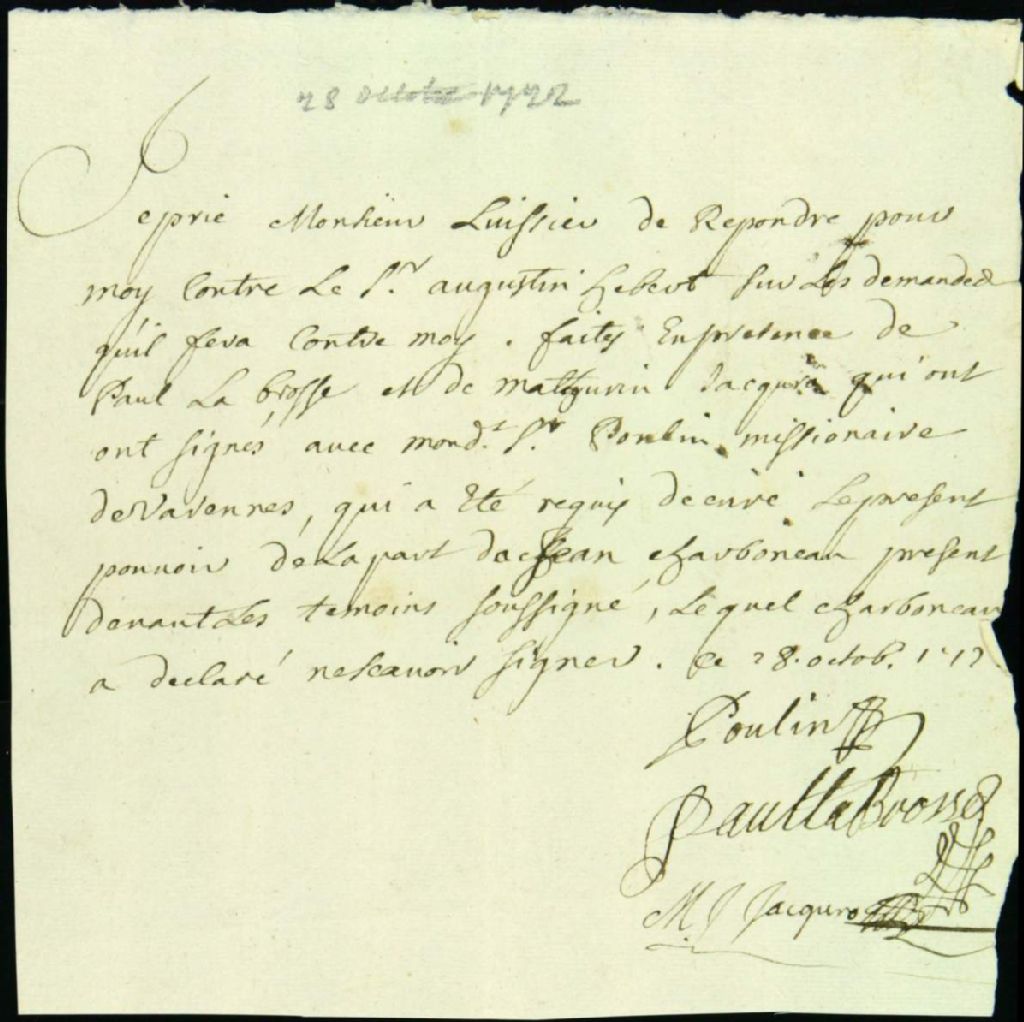 28 octobre 1722
Je prie Monsieur Luissier de Repondre pour
moy Contre Le Sr. augustin hebert sur Les demandes
qu'il fera Contre moy. faites En presence de
Paul La brosse et de mathurin Jacqure qui ont
ont signés avec mond.t Sr. Poulin missionaire
de Varennes, qui a Eté requis decrire Le present
pouvoir de La part de Jean charboneau present
devant Les temoins soussigné, Le quel charboneau
a declaré ne scavoir signer. Ce 28. octob.
Poulin
Paul La Brosse
M J Jacquro